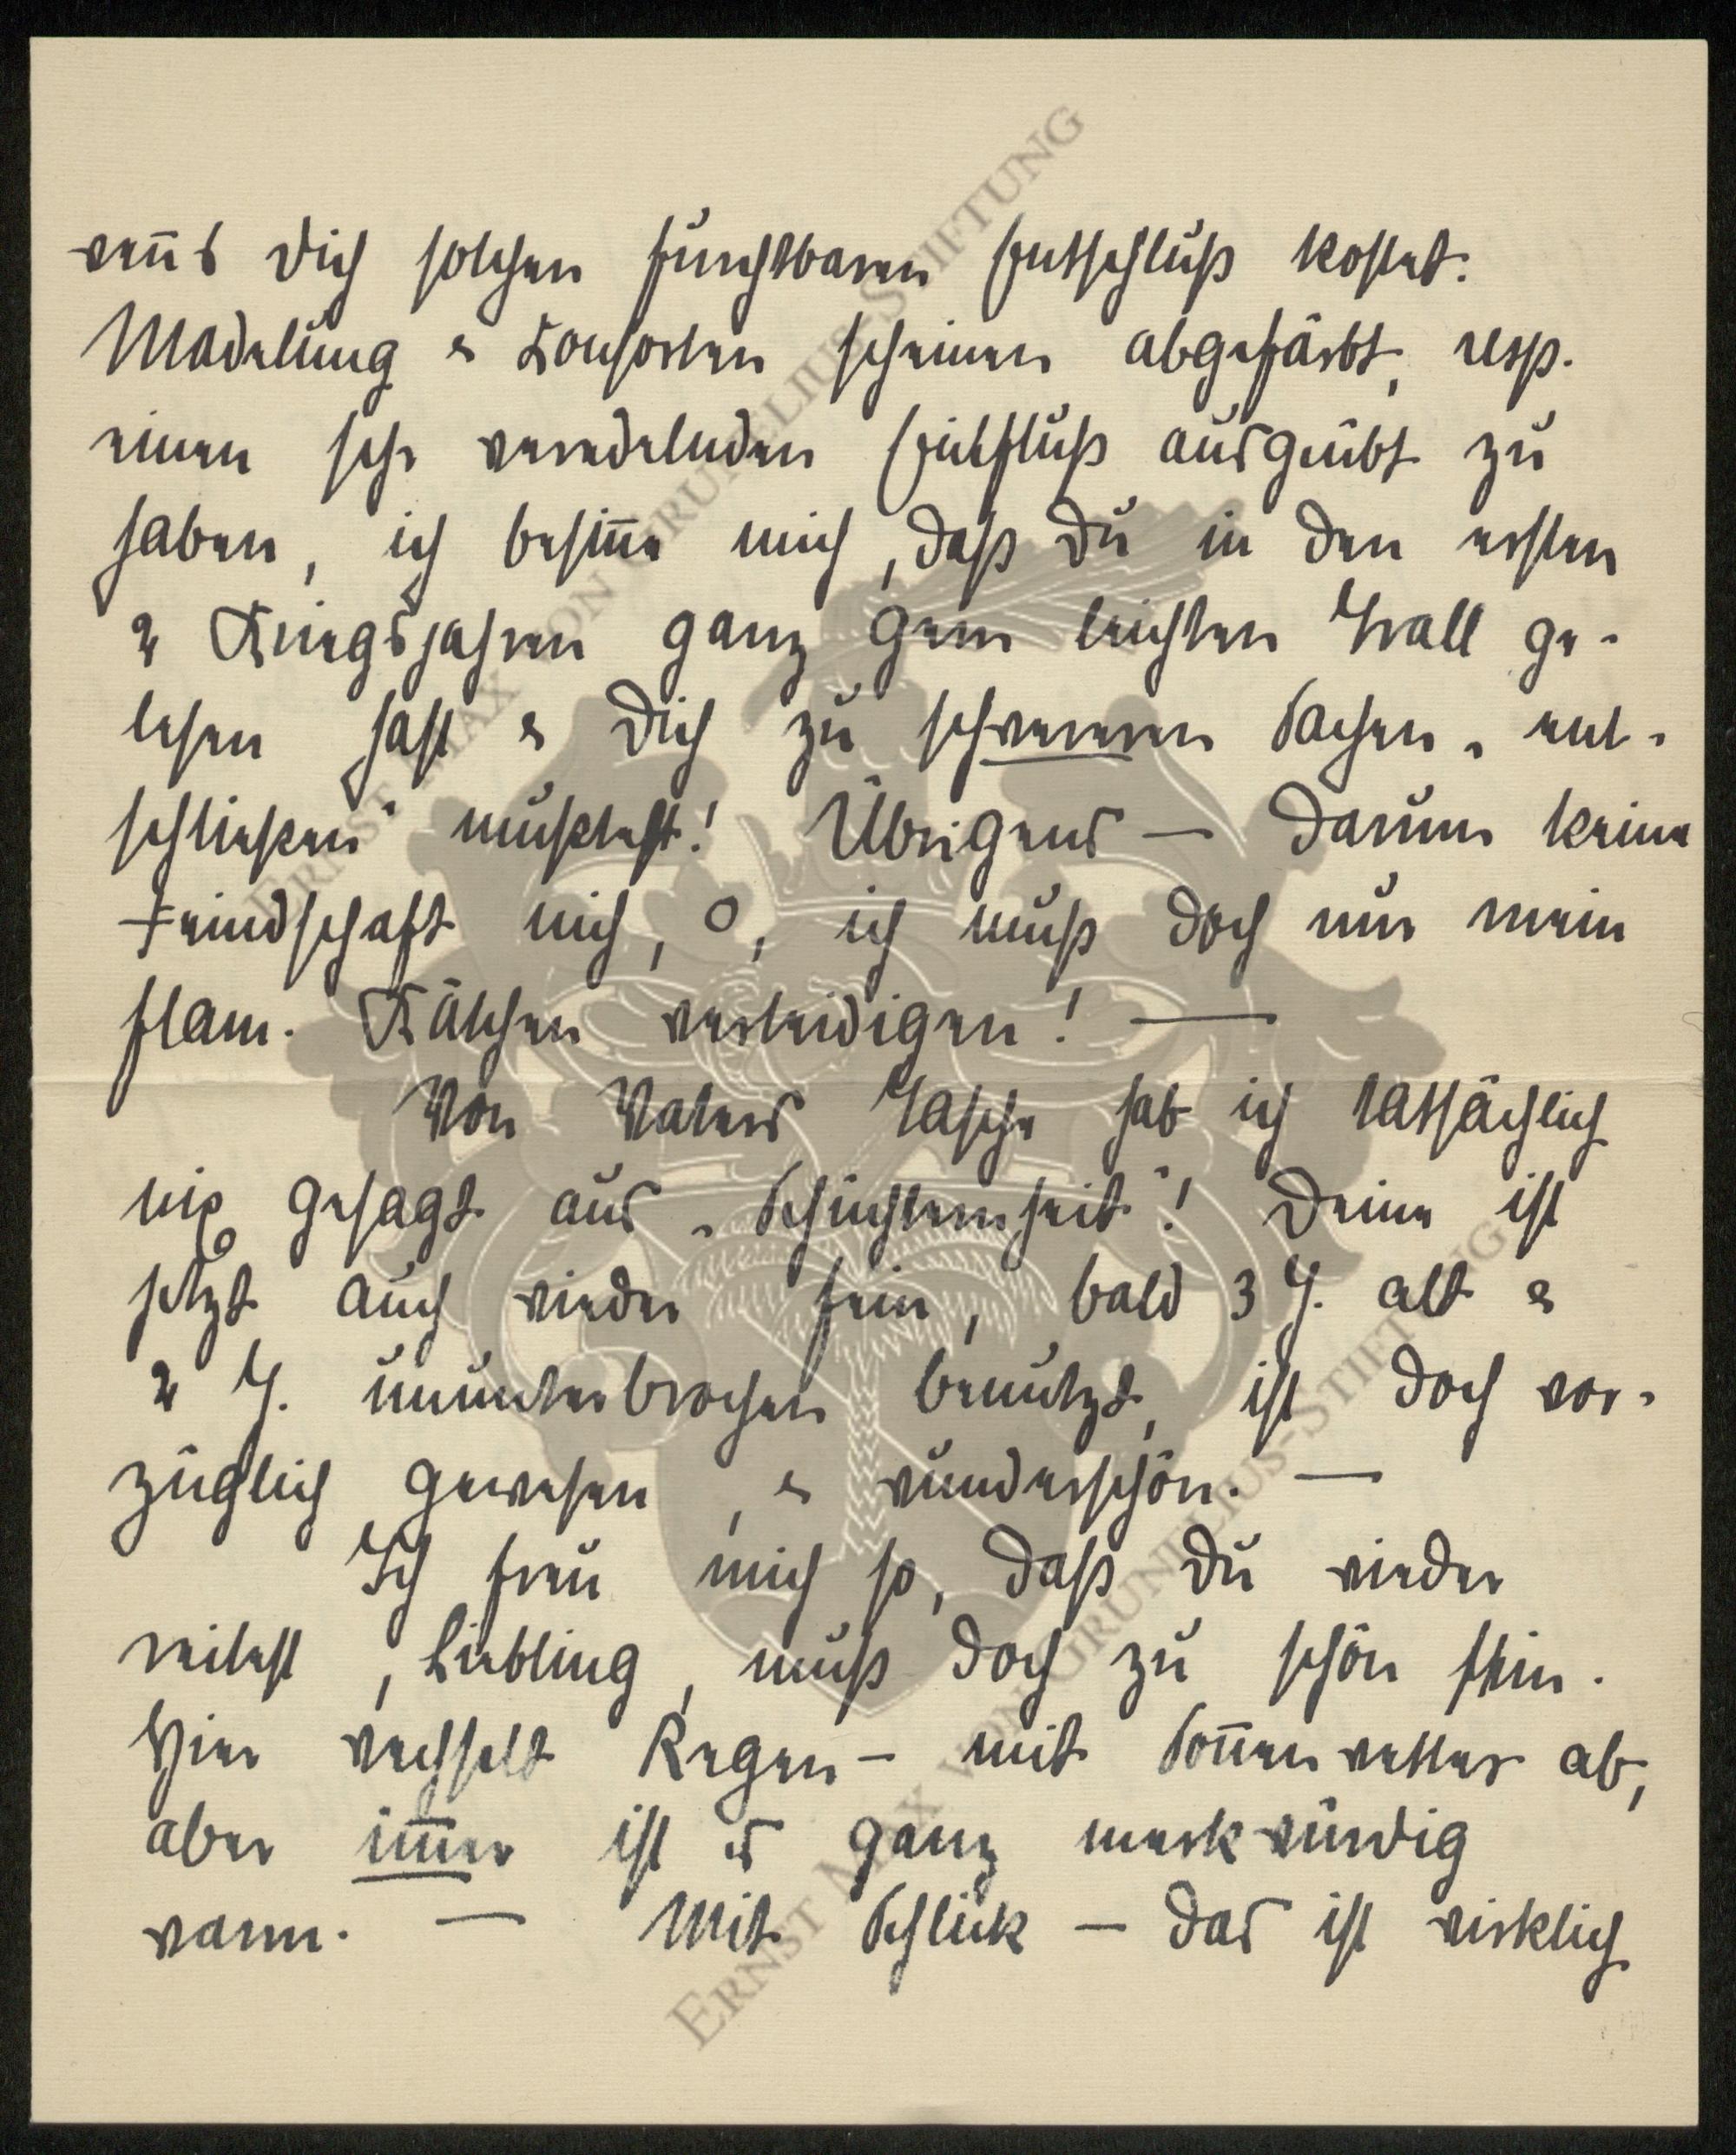 wen̅s Dich solchen furchtbaren Entschluß kostet.
Madelung & Konsorten scheinen abgefärbt, resp.
einen sehr veredelnden Einfluß ausgeübt zu
haben, ich besin̅e mich, daß Du in den ersten
2 Kriegsjahren ganz gern leichten Trall ge-
lesen hast & Dich zu schwereren Sachen „ent-
schließen" mußtest! Übrigens — darum keine
Feindschaft nich, o, ich muß doch nur mein
flam. Kätchen verteidigen! —
Von Vaters Tasche hab ich tatsächlich
nix gesagt aus „Schüchternheit"! Deine ist
jetzt auch wieder fein, bald 3 J. alt &
2 J. ununterbrochen benutzt, ist doch vor-
züglich gewesen, & wunderschön. —
Ich freu mich so, daß Du wieder
reitest, Liebling, muß doch zu schön sein.
Hier wechselt Regen- mit Son̅enwetter ab,
aber im̅er ist es ganz merkwürdig
warm. — Mit Schlick — das ist wirklich
ERNST MAX VON GRUNELIUS-STIFTUNG
ERNST MAX VON GRUNELIUS-STIFTUNG